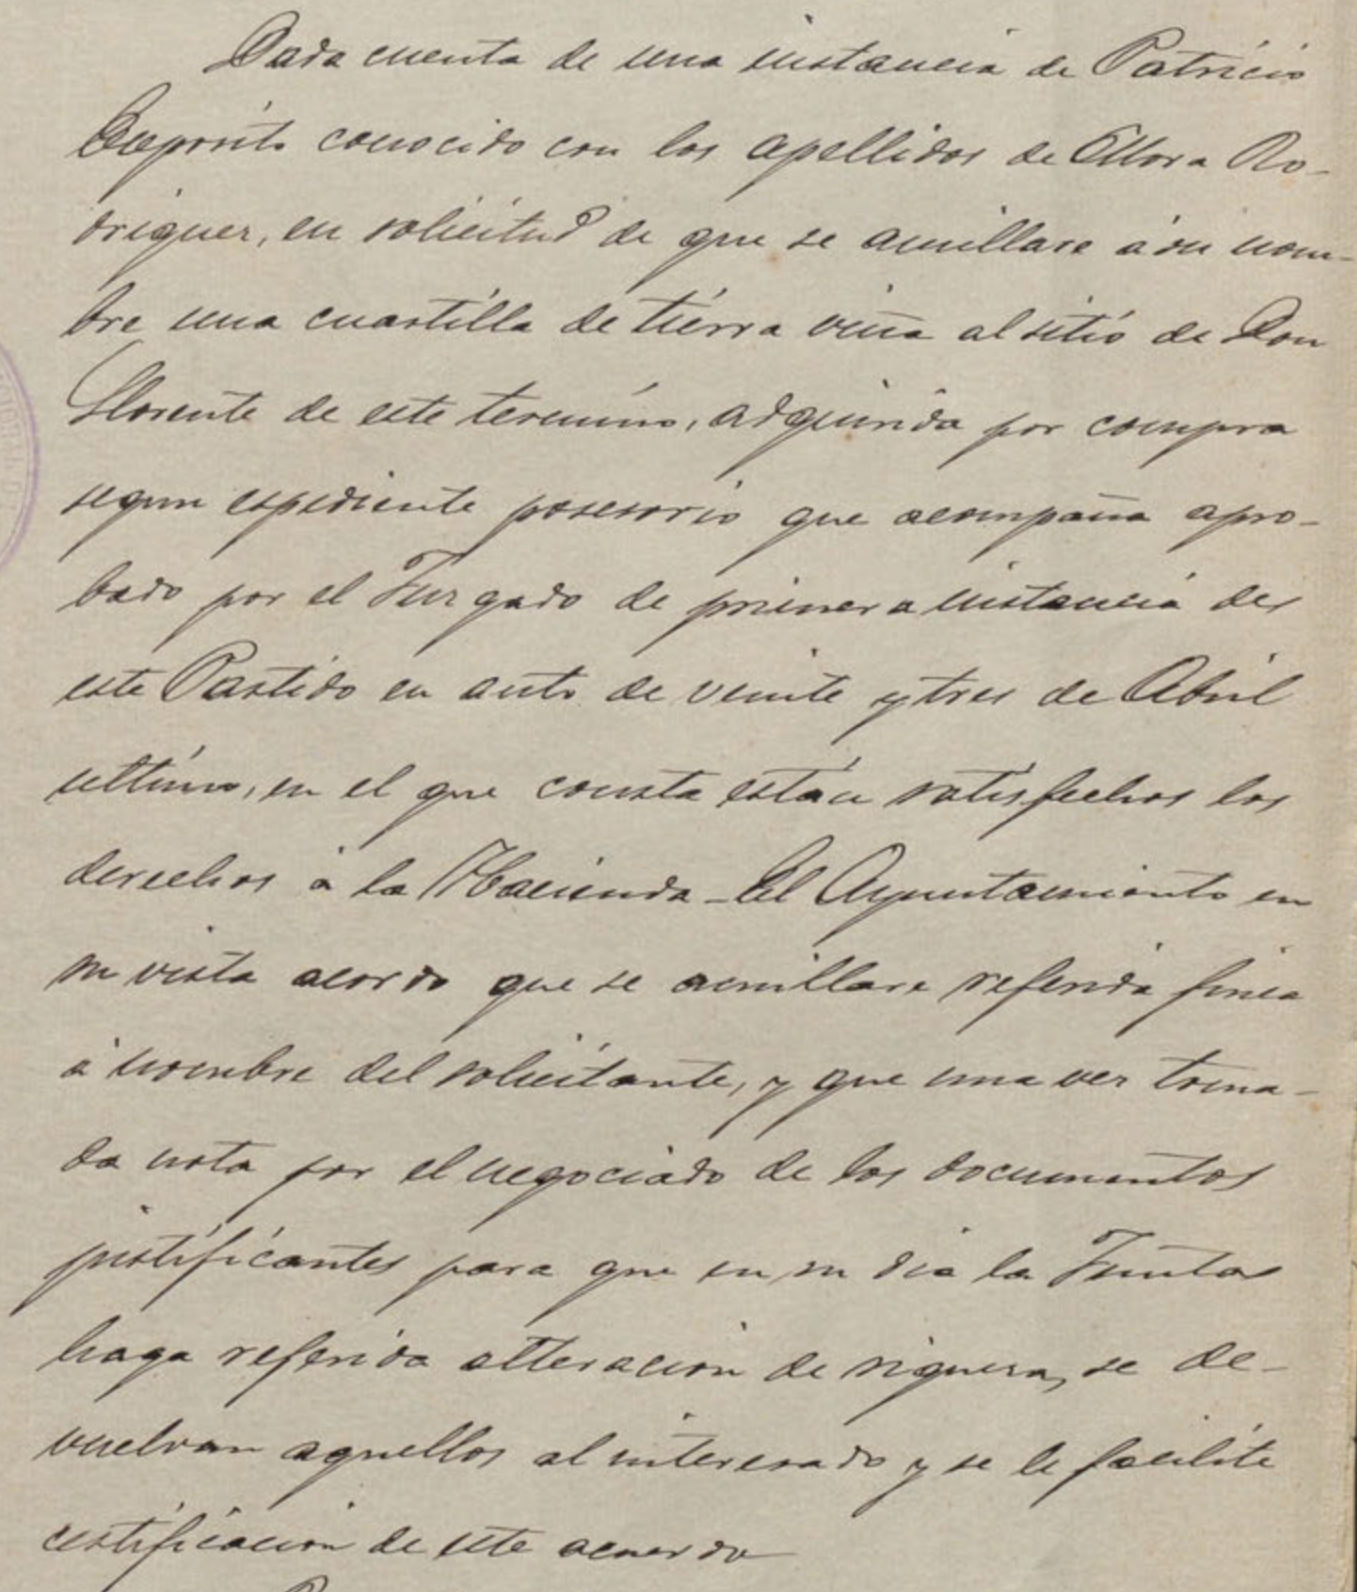 Dada cuenta de una instancia de Patricio
Expósito conocido con los apellidos de Mora Ro-
driguez, en solicitud de que se amillare á su nom-
bre una cuartilla de tierra viña al sitio de Don
Llorente de este término, adquirida por compra
segun espediente posesorio que acompaña apro-
bado por el Juzgado de primera instancia de
este Partido en auto de veinte y tres de Abril
ultimo, en el que consta están satisfechos los
derechos á la Hacienda - El Ayuntamiento en
su vista acordo que se amillare referida finca
á nombre del solicitante, y que una vez toma-
da nota por el negociado de los documentos
justificantes para que en su dia la Junta
haga referida alteracion de riqueza, se de-
vuelvan aquellos al interesado y se le facilite
certificacion de este acuerdo